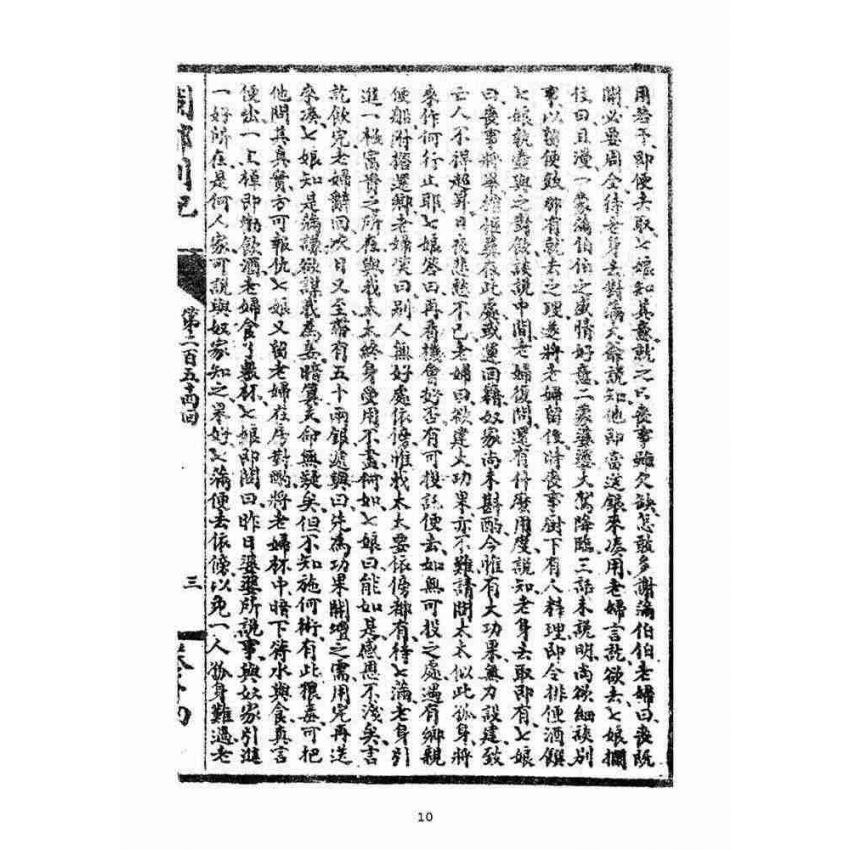 用答予即便去取七娘知其意就之只喪事雖欠缺怎敢多謝滿伯伯老婦曰喪既
開必要周全待老身去對滿大爺說知他即當送銀來凑用老婦言訖欲去七娘攔
住曰且漫一蒙滿伯伯之盛情好意二蒙婆婆大駕降臨三話未說明尚欲細談別
事以留便敘那有就去之理遂將老婦留後時喪事厨下有人料理即令排便酒饌
七娘執壺與之對飲談說中間老婦復問還有什麼用度說知老身去取即有七娘
曰喪事將畢擔柩葬在此處或運回籍奴家尚未斟酌今惟有大功果無力設建致
亡人不得超昇日夜悲愁不已老婦曰欲建大功果亦不難請問太太似此孤身將
來作何行止耶七娘答曰再看機會好否有可投託便去如無可投之處遇有鄉親
便船附搭還鄉老婦笑曰別人無好處依傍惟我太太要依傍都有待七滿老身引
進一極富貴之所在與我太太終身受用不盡何如七娘曰能如是感恩不淺矣言
訖飲完老婦辭回次日又至帶有五十兩銀遞與曰先為功果開壇之需用完再送
來凑七娘知是滿謙欲謀我為妾暗算夫命無疑矣但不知施何術有此狠毒可把
他問其真實方可報仇七娘又留老婦在房對酌將老婦杯中暗下符水與食真言
便出一上棹即勸飲酒老婦食了幾杯七娘即問曰昨日婆婆所說事與奴家引進
一好所在是何人家可說與奴家知之果好七滿便去依傍以免一人孤身難過老
閩都別記
第二百五十四回
三
卷五十四
10